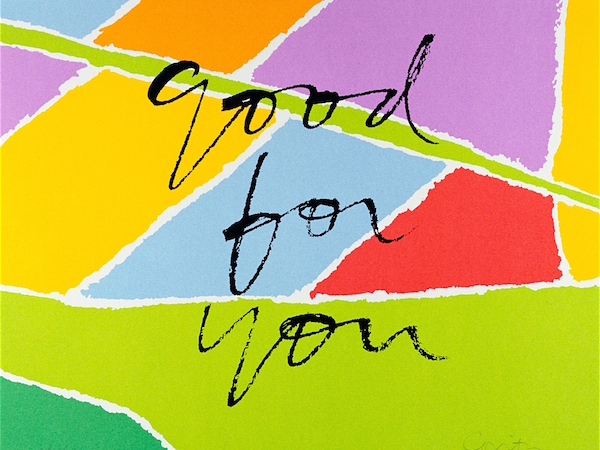 good
for
you